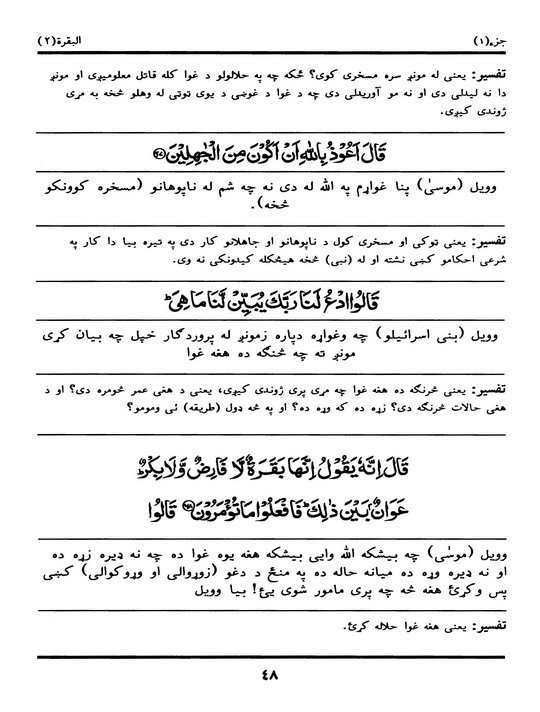 جزء(۱) البقرة(۲)
تفسیر: یعنی له مونږ سره مسخری کوی؟ ځکه چه په حلالولو د غوا کله قاتل معلومیږی او مونږ
دا نه لیدلی دی او نه مو آوریدلی دی چه د غوا د غوښی د یوی توتی له وهلو څخه به مړی
ژوندی کیږی.
قَالَ اَعُوْذُ بِاللّٰهِ اَنْ اَكُوْنَ مِنَ الْجٰهِلِيْنَ ﴿۶۷﴾
وویل (موسیٰ) پنا غواړم په الله له دی نه چه شم له ناپوهانو (مسخره کوونکو
څخه).
تفسیر: یعنی ټوکی او مسخری کول د ناپوهانو او جاهلانو کار دی په تیره بیا دا کار په
شرعی احکامو کښی نشته او له (نبی) څخه هیڅکله کیدونکی نه وی.
قَالُوا ادْعُ لَنَا رَبَّكَ يُبَيِّنْ لَّنَا مَا هِيَ ؕ
وویل (بنی اسرائیلو) چه وغواړه دپاره زمونږ له پروردگار خپل چه بیان کړی
مونږ ته چه څنگه ده هغه غوا
تفسیر: یعنی څرنگه ده هغه غوا چه مړی پری ژوندی کیږی، یعنی د هغی عمر څومره دی؟ او د
هغی حالات څرنگه دی؟ زړه ده که وړه ده؟ او په څه ډول (طریقه) ئی ومومو؟
قَالَ اِنَّهٗ يَقُوْلُ اِنَّهَا بَقَرَةٌ لَّا فَارِضٌ وَّلَا بِكْرٌ ؕ
عَوَانٌۢ بَيْنَ ذٰلِكَ ؕ فَافْعَلُوْا مَا تُؤْمَرُوْنَ ﴿۶۸﴾ قَالُوا
وویل (موسٰی) چه بیشکه الله وایی بیشکه هغه یوه غوا ده چه نه ډیره زړه ده
او نه ډیره وړه ده میانه حاله ده په منځ د دغو (زوړوالی او وړوکوالی) کښی
پس وکړئ هغه څه چه پری مامور شوی یئ! بیا وویل
تفسیر: یعنی هغه غوا حلاله کړئ.
٤٨